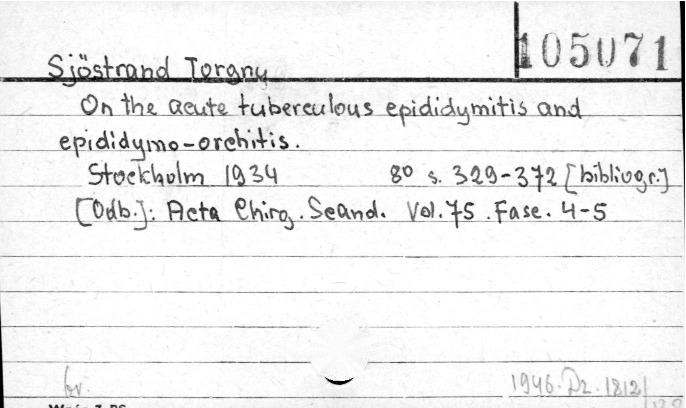 105071
Sjöstrand Torgny
On the acute tuberculous epididymitis and
epididymo-orchitis.
Stockholm 1934 8° s. 329-372 [bibliogr.]
[Odb.]: Acta Chirg. Scand. Vol. 75. Fasc. 4-5
br. 1946. Dz. 1812/